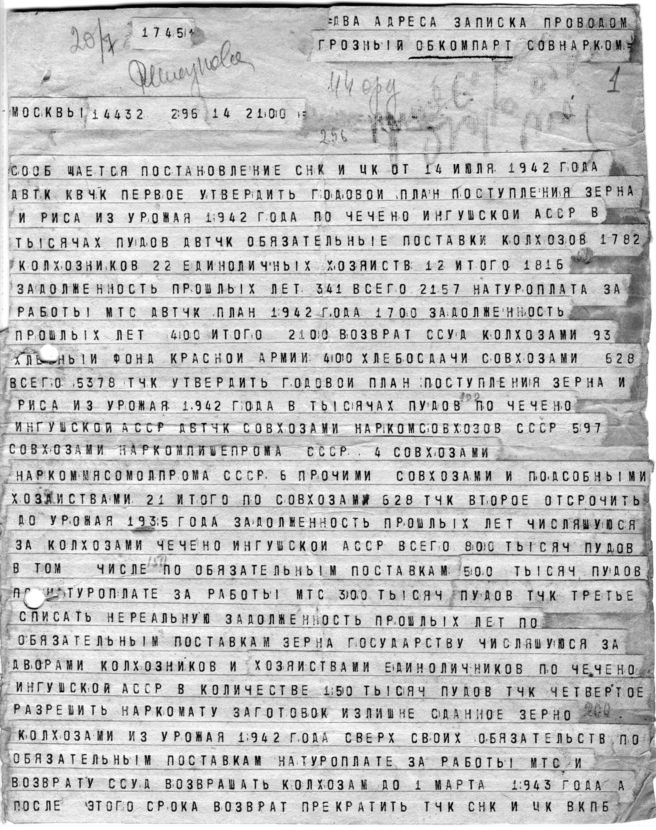 =ДВА АДРЕСА ЗАПИСКА ПРОВОДОМ
20/7 1745
ГРОЗНЫЙ ОБКОМПАРТ СОВНАРКОМ=
1
44
МОСКВЫ 14432 296 14 2100 =
256
СООБ ЩАЕТСЯ ПОСТАНОВЛЕНИЕ СНК И ЦК ОТ 14 ИЮЛЯ 1942 ГОДА
ДВТК КВЧК ПЕРВОЕ УТВЕРДИТЬ ГОДОВОЙ ПЛАН ПОСТУПЛЕНИЯ ЗЕРНА
И РИСА ИЗ УРОЖАЯ 1942 ГОДА ПО ЧЕЧЕНО ИНГУШСКОЙ АССР В
ТЫСЯЧАХ ПУДОВ ДВТЧК ОБЯЗАТЕЛЬНЫЕ ПОСТАВКИ КОЛХОЗОВ 1782
КОЛХОЗНИКОВ 22 ЕДИНОЛИЧНЫХ ХОЗЯИСТВ 12 ИТОГО 1816
ЗАДОЛЖЕННОСТЬ ПРОШЛЫХ ЛЕТ 341 ВСЕГО 2157 НАТУРОПЛАТА ЗА
РАБОТЫ МТС ДВТЧК ПЛАН 1942 ГОДА 1700 ЗАДОЛЖЕННОСТЬ
ПРОШЛЫХ ЛЕТ 400 ИТОГО 2100 ВОЗВРАТ ССУД КОЛХОЗАМИ 93
ХЛЕБНЫЙ ФОНД КРАСНОЙ АРМИИ 400 ХЛЕБОСДАЧИ СОВХОЗАМИ 628
ВСЕГО 5378 ТЧК УТВЕРДИТЬ ГОДОВОЙ ПЛАН ПОСТУПЛЕНИЯ ЗЕРНА И
РИСА ИЗ УРОЖАЯ 1942 ГОДА В ТЫСЯЧАХ ПУДОВ ПО ЧЕЧЕНО
ИНГУШСКОЙ АССР ДВТЧК СОВХОЗАМИ НАРКОМСОВХОЗОВ СССР 597
СОВХОЗАМИ НАРКОМПИШЕПРОМА СССР 4 СОВХОЗАМИ
НАРКОММЯСОМОЛПРОМА СССР 6 ПРОЧИМИ СОВХОЗАМИ И ПОДСОБНЫМИ
ХОЗЯЙСТВАМИ 21 ИТОГО ПО СОВХОЗАМ 628 ТЧК ВТОРОЕ ОТСРОЧИТЬ
ДО УРОЖАЯ 1935 ГОДА ЗАДОЛЖЕННОСТЬ ПРОШЛЫХ ЛЕТ ЧИСЛЯШУЮСЯ
ЗА КОЛХОЗАМИ ЧЕЧЕНО ИНГУШСКОЙ АССР ВСЕГО 800 ТЫСЯЧ ПУДОВ
В ТОМ ЧИСЛЕ ПО ОБЯЗАТЕЛЬНЫМ ПОСТАВКАМ 500 ТЫСЯЧ ПУДОВ
ПО НАТУРОПЛАТЕ ЗА РАБОТЫ МТС 300 ТЫСЯЧ ПУДОВ ТЧК ТРЕТЬЕ
СПИСАТЬ НЕРЕАЛЬНУЮ ЗАДОЛЖЕННОСТЬ ПРОШЛЫХ ЛЕТ ПО
ОБЯЗАТЕЛЬНЫМ ПОСТАВКАМ ЗЕРНА ГОСУДАРСТВУ ЧИСЛЯШУЮСЯ ЗА
ДВОРАМИ КОЛХОЗНИКОВ И ХОЗЯИСТВАМИ ЕДИНОЛИЧНИКОВ ПО ЧЕЧЕНО
ИНГУШСКОЙ АССР В КОЛИЧЕСТВЕ 150 ТЫСЯЧ ПУДОВ ТЧК ЧЕТВЕРТОЕ
РАЗРЕШИТЬ НАРКОМАТУ ЗАГОТОВОК ИЗЛИШНЕ СДАННОЕ ЗЕРНО 200
КОЛХОЗАМИ ИЗ УРОЖАЯ 1942 ГОДА СВЕРХ СВОИХ ОБЯЗАТЕЛЬСТВ ПО
ОБЯЗАТЕЛЬНЫМ ПОСТАВКАМ НАТУРОПЛАТЕ ЗА РАБОТЫ МТС И
ВОЗВРАТУ ССУД ВОЗВРАШАТЬ КОЛХОЗАМ ДО 1 МАРТА 1943 ГОДА А
ПОСЛЕ ЭТОГО СРОКА ВОЗВРАТ ПРЕКРАТИТЬ ТЧК СНК И ЦК ВКПБ